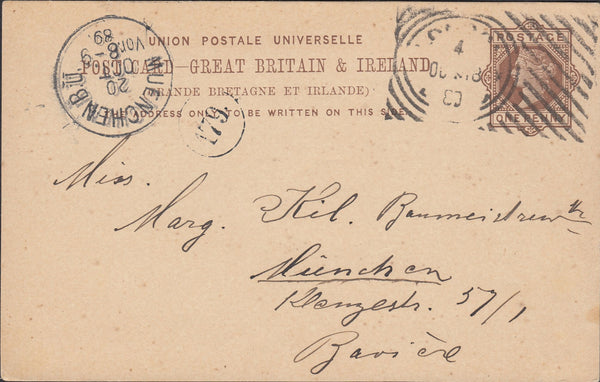 UNION POSTALE UNIVERSELLE
POST CARD—GREAT BRITAIN & IRELAND
(GRANDE BRETAGNE ET IRLANDE)
ADDRESS ONLY TO BE WRITTEN ON THIS SIDE
MUENCHEN.B.II
20
OCT
8-9
Vor.
89.
4
OC 18
89
POSTAGE
ONE PENNY
Miss.
Marg. Kil.
München
Klenzestr. 57/1
Bavière